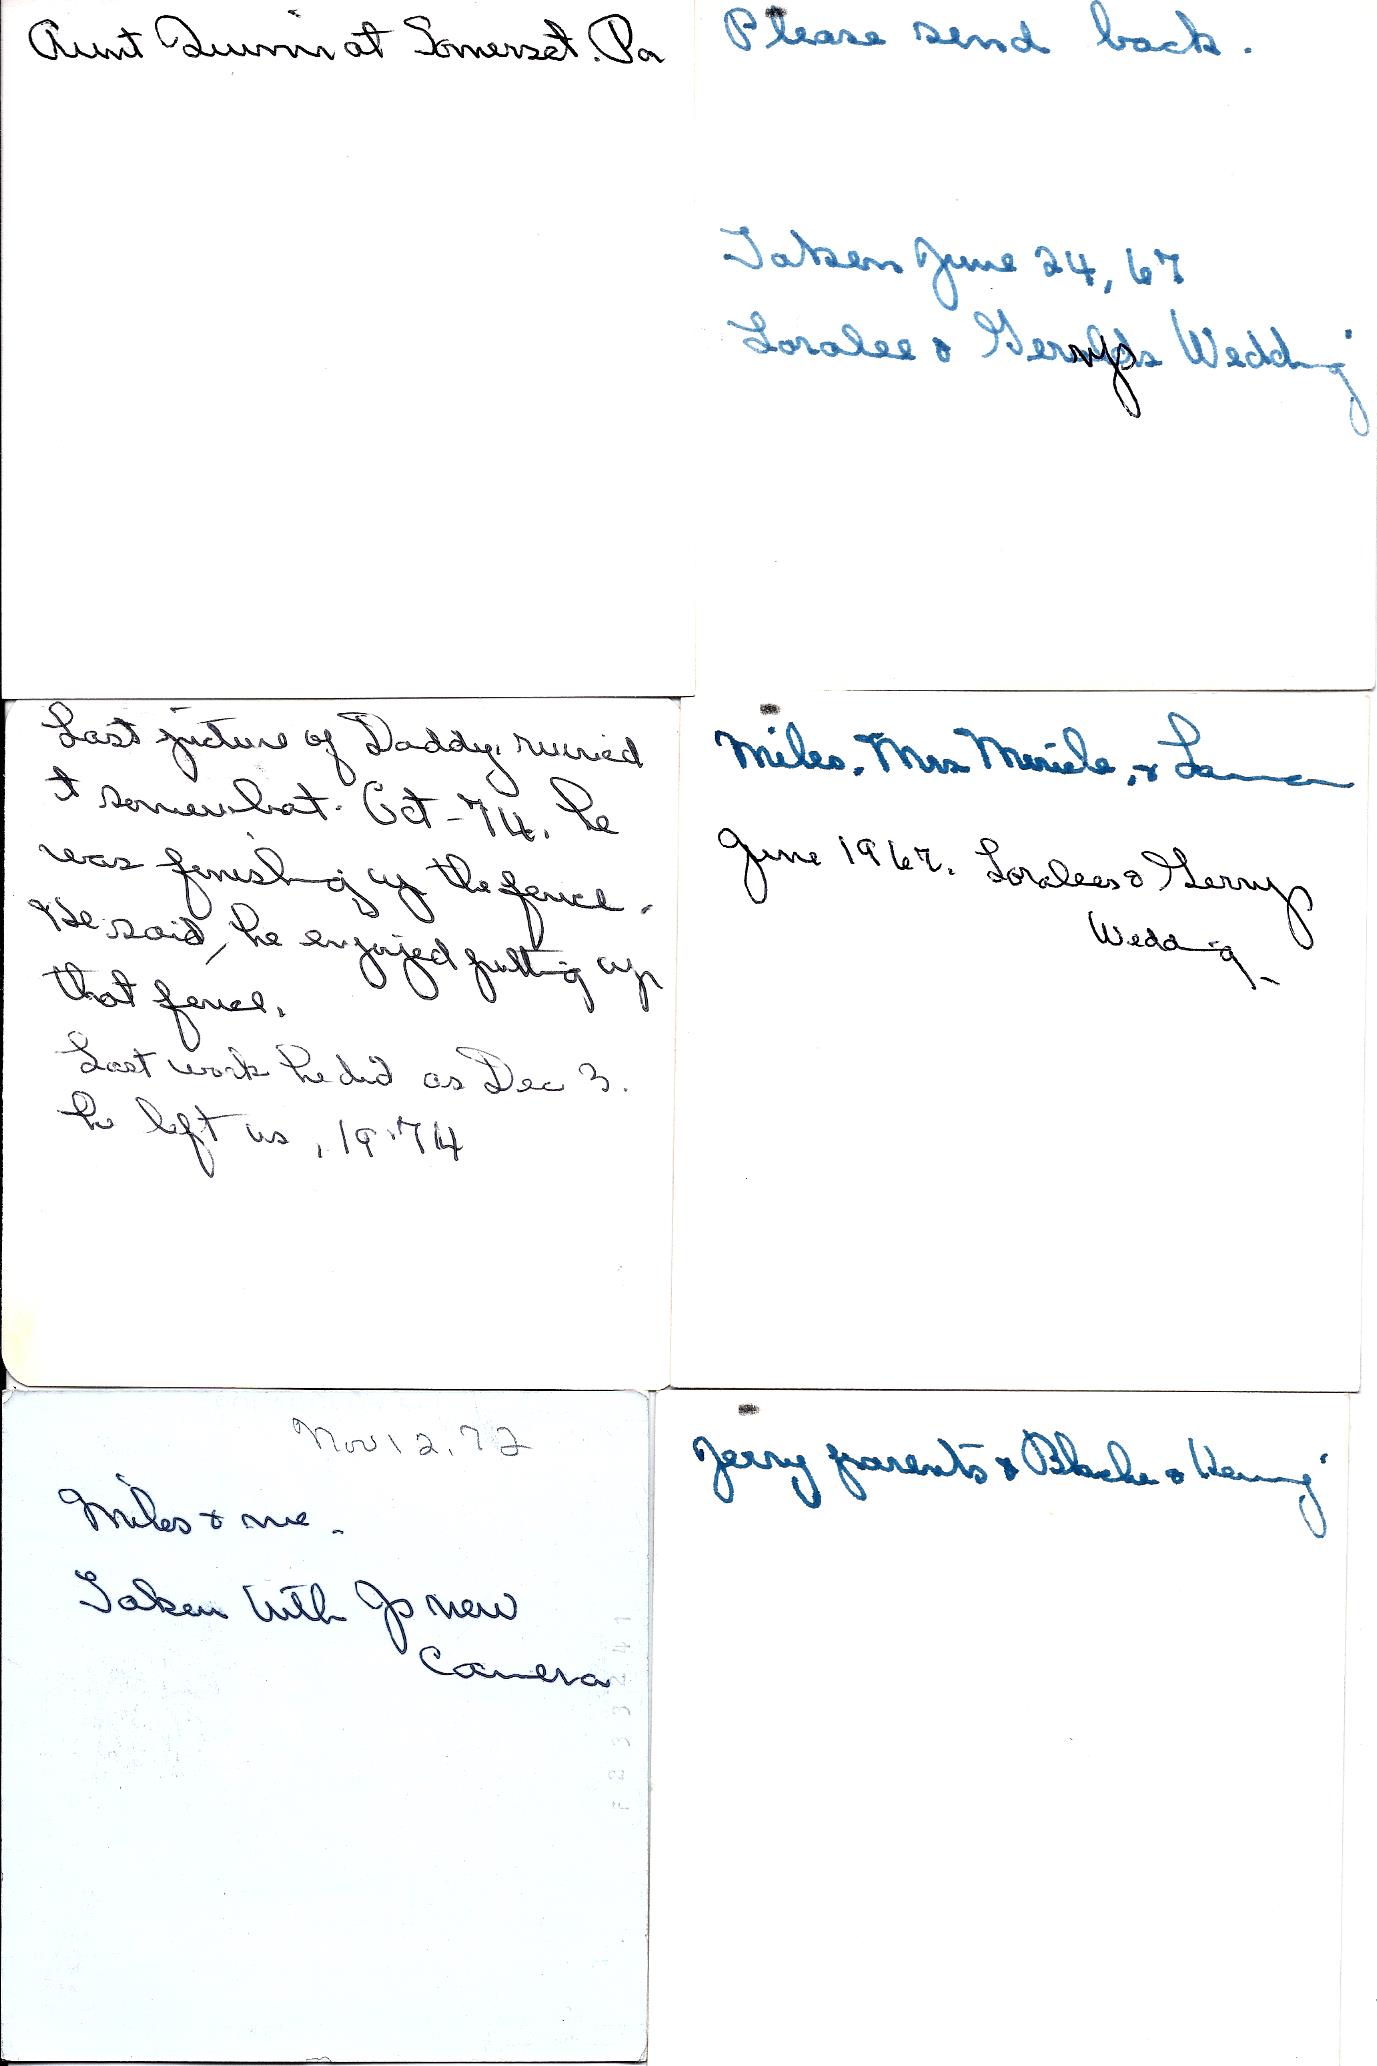 Aunt at Somerset. Pa
Please send back.
Taken June 24, 67
Loralee & Gerrys Wedding
Last picture of Daddy, ruined
it somewhat. Oct-74. he
was finishing up the fence.
He said, he enjoyed putting up
that fence.
Last work he did as Dec 3.
he left us, 1974
Miles. Mrs &
June 1967. Loralees & Gerrys
Wedding
Nov 12, 72
Miles & me.
Taken With Js new
Camera
F233241
Jerry parents & &